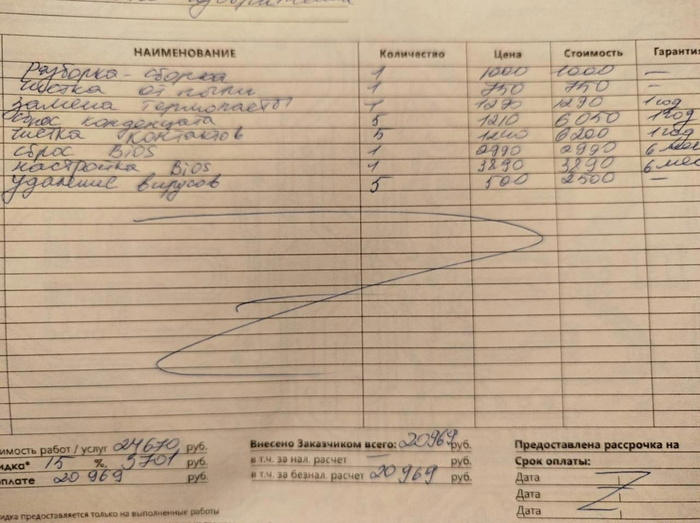 НАИМЕНОВАНИЕ Количество Цена Стоимость Гарантия
Разборка-сборка 1 1000 1000 —
Чистка от пыли 1 750 750 —
Замена термопасты 1 1290 1290 1 год
Сброс конденцата 5 1210 6050 1 год
Чистка контактов 5 1240 6200 1 год
Сброс BiOS 1 2990 2990 6 мес
Настройка BiOS 1 3890 3890 6 мес
Удаление вирусов 5 500 2500 —
имость работ / услуг 24670 руб. Внесено Заказчиком всего: 20969 руб. Предоставлена рассрочка на
идка* 15 % 3701 руб. в т.ч. за нал. расчет — руб. Срок оплаты:
плате 20969 руб. в т.ч. за безнал. расчет 20969 руб. Дата
Дата
Дата
идка предоставляется только на выполненные работы